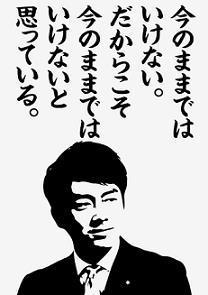 今のままでは
いけない。
だからこそ
今のままでは
いけないと
思っている。